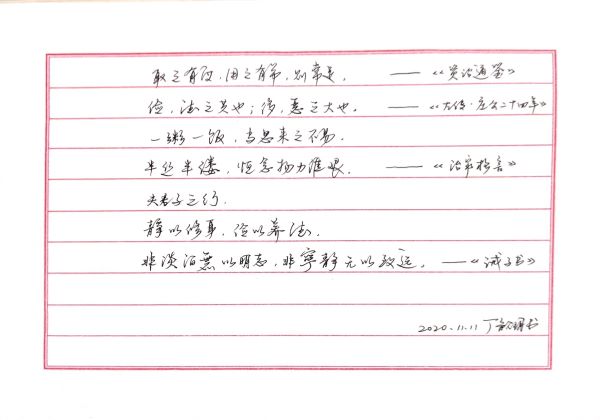 取之有度，用之有节，则常足。 ——《资治通鉴》
俭，德之共也；侈，恶之大也。 ——《左传·庄公二十四年》
一粥一饭，当思来之不易。
半丝半缕，恒念物力维艰。 ——《治家格言》
夫君子之行，
静以修身，俭以养德。
非淡泊無以明志，非寧静无以致远。 ——《诫子书》
2020.11.11 丁